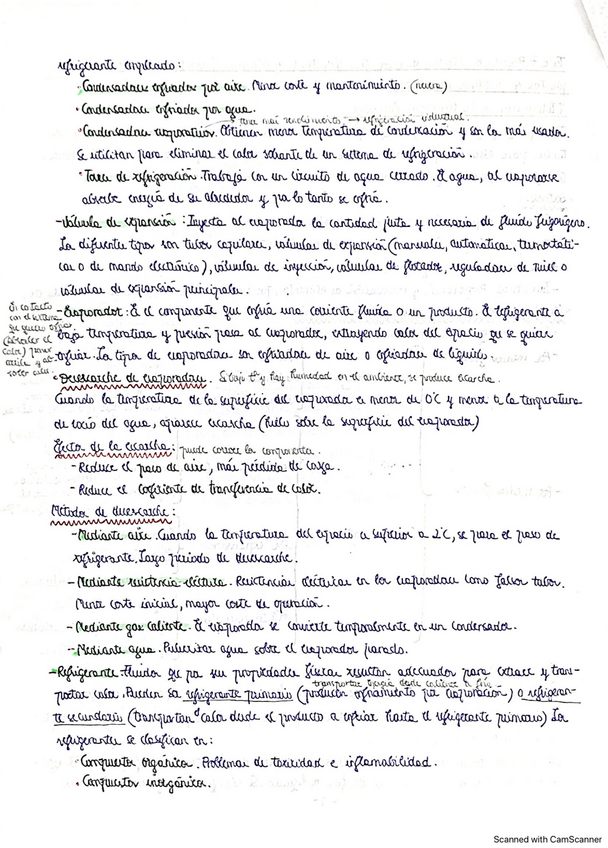 refrigerante empleado:
· Condensadores enfriados por aire. Menor coste y mantenimiento. (nevera)
· Condensadores enfriados por agua.
Tiene más rendimiento → refrigeración industrial.
· Condensadores evaporativos. Obtienen menor temperatura de condensación y son los más usados.
Se utilizan para eliminar el calor sobrante de un sistema de refrigeración.
· Torres de refrigeración. Trabaja con un circuito de agua cerrado. El agua, al evaporarse
absorbe energía de su alrededor y por lo tanto se enfría.
- Válvula de expansión: Inyecta al evaporador la cantidad justa y necesaria de fluido frigorígeno.
Los diferentes tipos son tubos capilares, válvulas de expansión (manuales, automáticas, termostáti-
cas o de mando electrónico), válvulas de inyección, válvulas de flotador, reguladores de nivel o
válvulas de expansión principales.
En contacto
con el sistema
que quiero enfriar
(absorber el
calor) para
- Evaporador: Es el componente que enfría una corriente fluida o un producto. El refrigerante a
baja temperatura y presión pasa al evaporador, extrayendo calor del espacio que se quiere
enfriar. Los tipos de evaporadores son enfriadores de aire o enfriadores de líquido.
· Desescarche de evaporadores. Si baja tª y hay humedad en el ambiente, se produce escarcha.
Cuando la temperatura de la superficie del evaporador es menor de 0°C y menor a la temperatura
de rocío del agua, aparece escarcha (hielo sobre la superficie del evaporador)
Efectos de la escarcha: puede romper los componentes.
- Reduce el paso de aire, más pérdida de carga.
- Reduce el coeficiente de transferencia de calor.
Métodos de desescarche:
- Mediante aire. Cuando la temperatura del espacio es superior a 2°C, se para el paso de
refrigerante. Largo periodo de desescarche.
- Mediante resistencia eléctrica. Resistencias eléctricas en los evaporadores como falsos tubos.
Menor coste inicial, mayor coste de operación.
- Mediante gas caliente. El evaporador se convierte temporalmente en un condensador.
- Mediante agua. Pulverizar agua sobre el evaporador parado.
- Refrigerante. Fluidos que por sus propiedades físicas resultan adecuados para extraer y trans-
transportar energía desde caliente a frío
portar calor. Pueden ser refrigerante primario (producen enfriamiento por evaporación) o refrigeran-
te secundario (transportan calor desde el producto a enfriar hasta el refrigerante primario) Los
refrigerantes se clasifican en:
· Compuestos orgánicos. Problemas de toxicidad e inflamabilidad.
· Compuestos inorgánicos.
Scanned with CamScanner